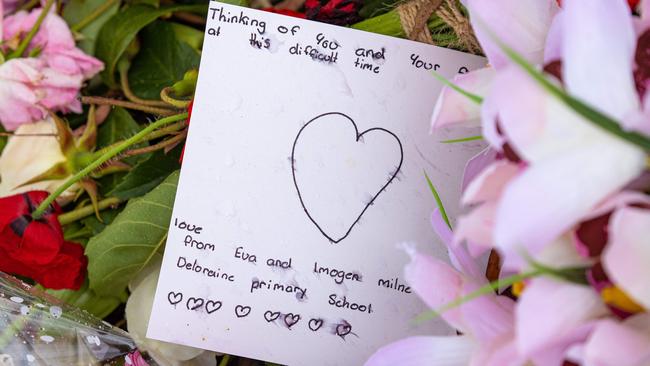 Thinking of You and Your
at this difficult time
love
from Eva and Imogen milne
Deloraine primary School